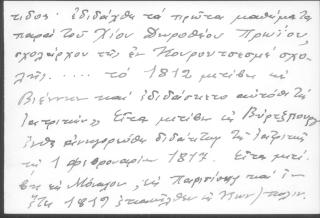 τιδος· ἐδιδάχθη τὰ πρῶτα μαθήματα
παρὰ τοῦ Χίου Δωροθέου Πρωΐου,
σχολάρχου τῆς ἐν Κουρουτσεσμὲ σχο-
λῆς. .... τὸ 1812 μετέβη εἰς
Βιέννην καὶ ἐδιδάσκετο αὐτόθι τὴν
ἰατρικήν. Εἶτα μετέβη εἰς Βύρτζβουργ
ἔνθα ἀνηγορεύθη διδάκτωρ τῆς ἰατρικῆς
τῇ 1 φεβρουαρίου 1817. Εἶτα μετέ-
βη εἰς Μόναχον, εἰς Παρισίους καὶ
1819 ἐπανῆλθεν εἰς Κων/πολιν.